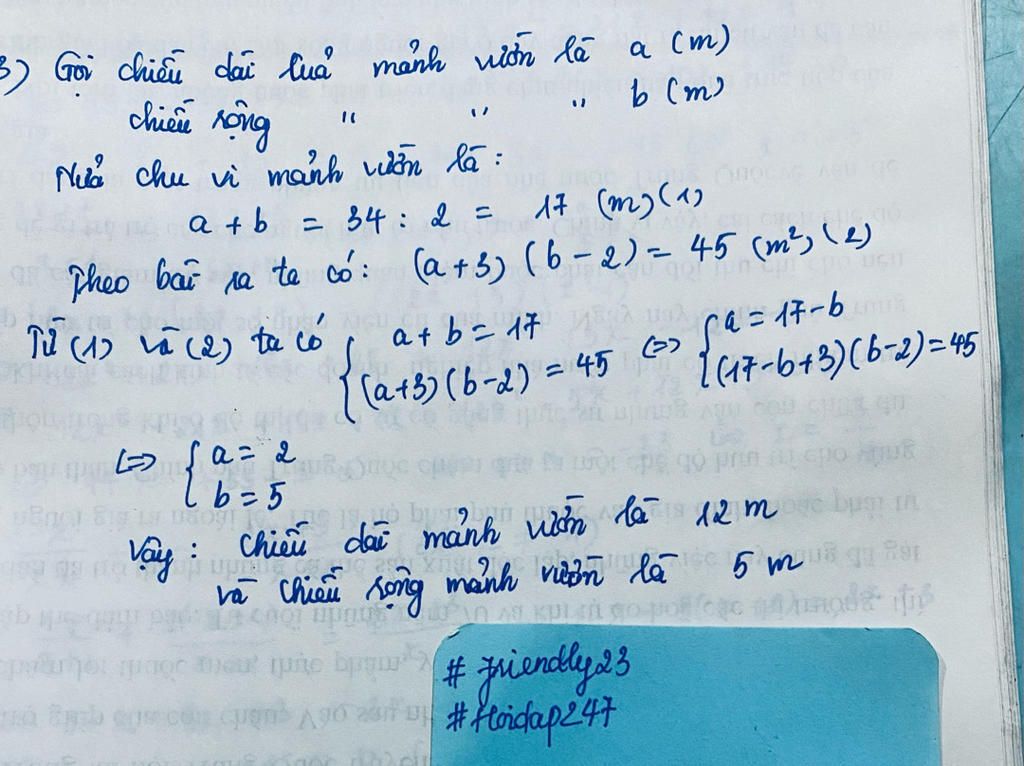 3) Gọi chiều dài của mảnh vườn là a (m)
chiều rộng " " " b (m)
Nửa chu vi mảnh vườn là:
a + b = 34 : 2 = 17 (m) (1)
Theo bài ra ta có: (a+3) (b-2) = 45 (m²) (2)
Từ (1) và (2) ta có { a + b = 17 (a+3) (b-2) = 45 <=> { a = 17 - b (17-b+3)(b-2) = 45
<=> { a = 2
b = 5
Vậy: chiều dài mảnh vườn là 12 m
và chiều rộng mảnh vườn là 5 m
# friendly23
# Hoidap247